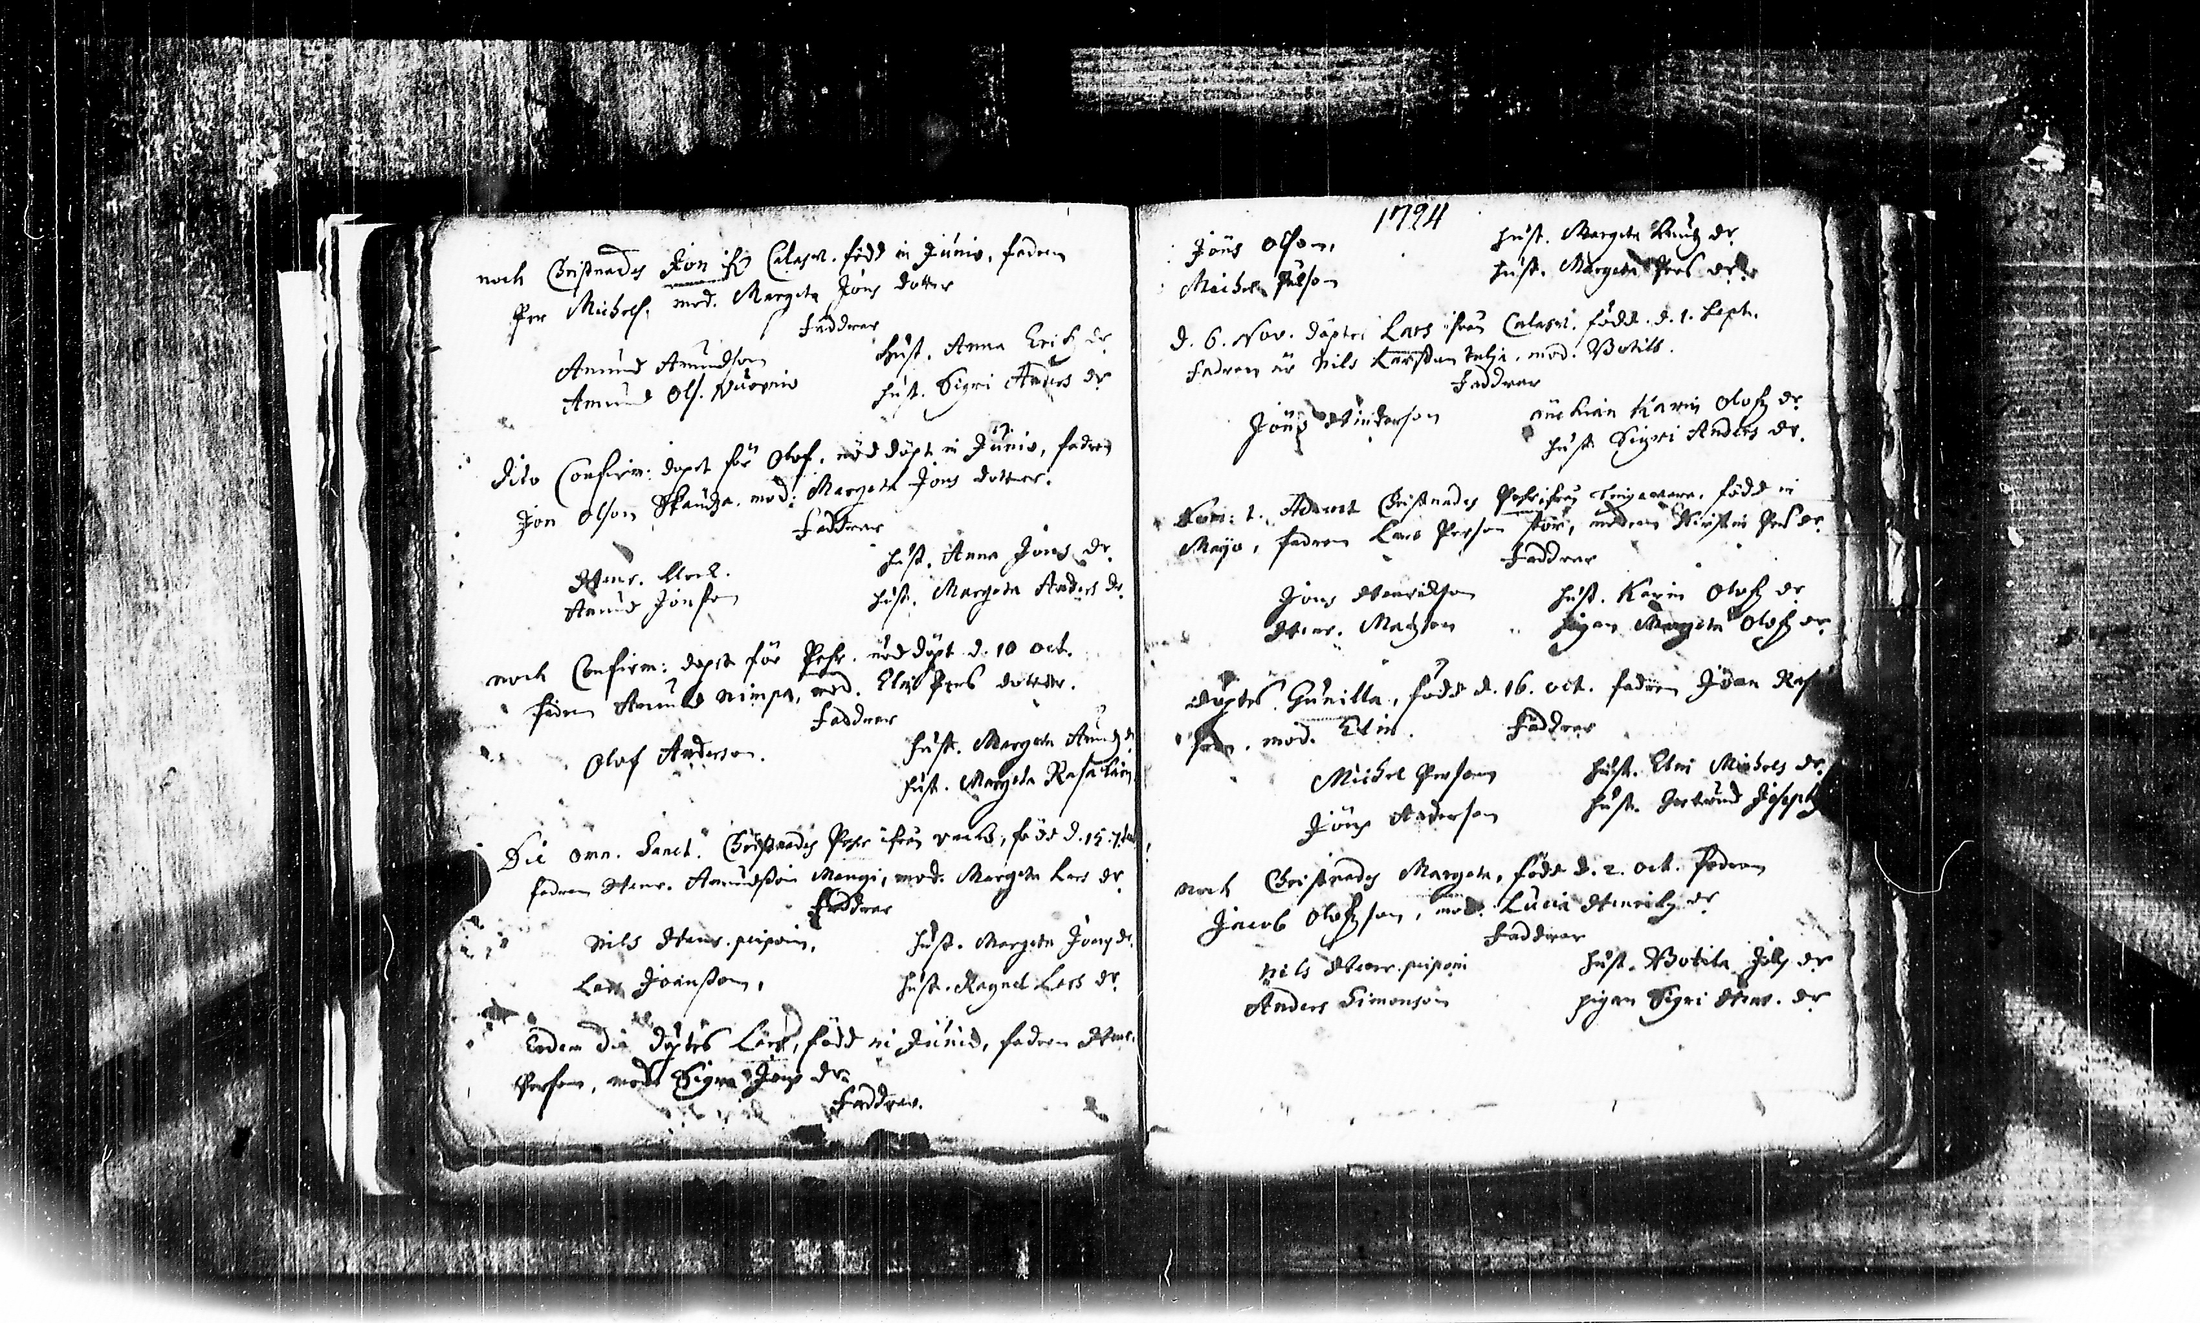 noch Christnades Jon ifr Calajoc. född in Junio, fadren
Per Michels. mod. Margeta Jöns dotter
Faddrar
Amund Amundson hust. Anna Erich dr
Amund Ols. hust. Sigri Anders dr
Dito Confirm: dopet för Olof, nöd döpt in Junio, fadren
Jon Olson mod: Margeta Jöns dotter.
Faddrar
hust. Anna Jöns dr.
Amund Jönson hust. Margeta Anders dr.
noch Confirm: dopet för Pehr. nöd döpt d. 10 oct.
fadren Amund mod. Elin Pers dotter.
Faddrar
Olof Anderson. hust. Margeta Amunds
hust. Margeta
Die omn. Sanct. Christnades Pehr ifrån född d. 15.
fadren Henr. Amundson mod. Margeta Lars dr.
Faddrar
Nils Henr. piiponi, hust. Margeta Jöns dr.
Lars Joänson, hust. Ragnel Lars dr.
Eodem die döptes Lars, född in Junio, fadren Henr.
Person, mod. Signa Jöns dr.
Faddrar.
1724
Jöns Olson, hust. Margeta dr
Michel Pålson hust. Margeta Pers dr.
d. 6. Nov. döptes Lars ifrån Calajoc. född d. 1. Sept.
Fadren är Nils mod. Botill.
Faddrar
Jöns Hinderson Karin Olofz dr.
hust. Sigri Anders dr.
Dom: 1. Advent Christnades Pehr ifrån född in
Mayo, fadren Lars Person modren Kirstin Pers dr.
Faddrar
Jöns Henrikson hust. Karin Olofz dr
Henr. Matzson pigan Margeta Olofz dr.
döptes Gunilla, född d. 16. oct. fadren Jöran
son. mod. Elin. Faddrar
Michel Person hust. Elin Michels dr.
Jöns Anderson hust. Gertrud Josephs
noch Christnades Margeta, född d. 2. oct. Fadren
Jacob Olofzson, mod. Lucia Henrikz dr
Faddrar
Nils Henr. piiponi hust. Botila dr
Anders Simonson pigan Sigri Henr. dr